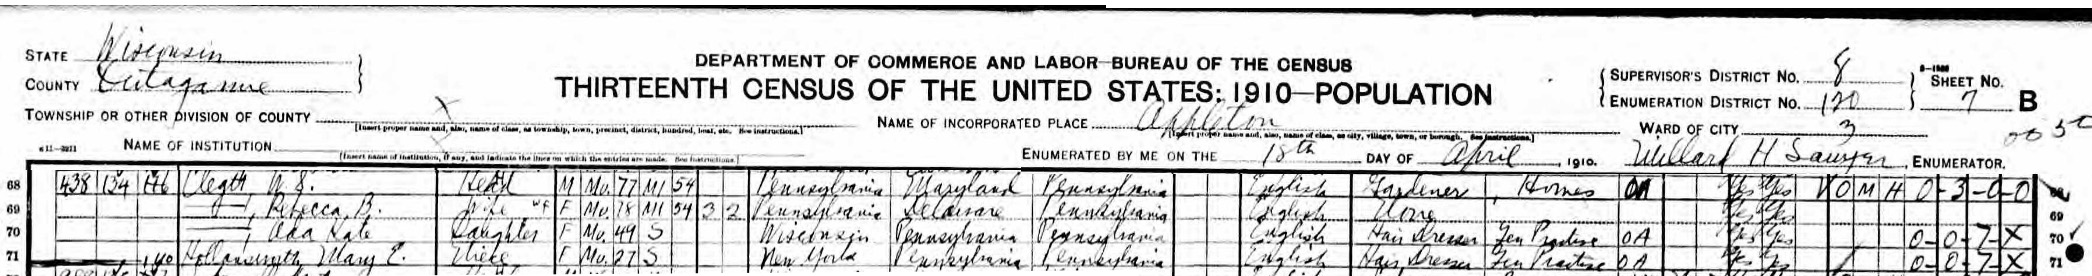 STATE Wisconsin
COUNTY Outagamie
DEPARTMENT OF COMMERCE AND LABOR—BUREAU OF THE CENSUS
THIRTEENTH CENSUS OF THE UNITED STATES: 1910—POPULATION
SUPERVISOR'S DISTRICT No. 8
ENUMERATION DISTRICT No. 120
SHEET No. 7 B
TOWNSHIP OR OTHER DIVISION OF COUNTY X
[Insert proper name and, also, name of class, as township, town, precinct, district, hundred, beat, etc. See instructions.]
NAME OF INCORPORATED PLACE Appleton
[Insert proper name and, also, name of class, as city, village, town, or borough. See instructions.]
WARD OF CITY 3
NAME OF INSTITUTION X
[Insert name of institution, if any, and indicate the lines on which the entries are made. See instructions.]
ENUMERATED BY ME ON THE 18th DAY OF April, 1910. Willard H Sawyer, ENUMERATOR.
68 438 134 Clegth, W. S. Head M 77 M1 54 Pennsylvania Maryland Pennsylvania English Gardener, Homes OA Yes Yes O M H 0-3-0-0
69 —, Rebecca B. Wife F 78 M1 54 3 2 Pennsylvania Delaware Pennsylvania English None Yes Yes 69
70 —, Ada Kate Daughter F 49 S Wisconsin Pennsylvania Pennsylvania English Hair Dresser Gen Practise OA Yes Yes 0-0-7-X 70
71 Mary E. Niece F 27 S New York Pennsylvania Pennsylvania English Hair Dresser Gen Practise OA Yes Yes 0-0-7-X 71